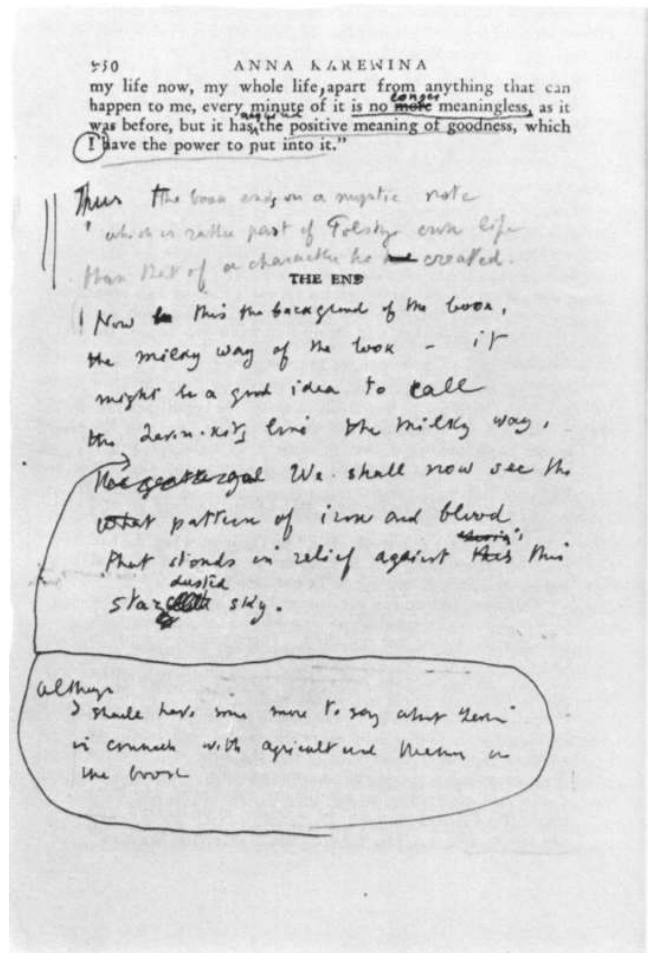 950 ANNA KARENINA
my life now, my whole life, apart from anything that can
happen to me, every minute of it is no more longer meaningless, as it
was before, but it has acquired the positive meaning of goodness, which
I have the power to put into it."
Thus the book ends on a mystic note
which is rather part of Tolstoy's own life
than that of a character he created.
THE END
Now this the background of the book,
the milky way of the book - it
might be a good idea to call
the Levin-Kitty line the milky way.
We shall now see the
what pattern of iron and blood
that stands in relief against this this
star dusted sky.
although
I shall have some more to say about Levin
in connection with agricultural matters in
the book